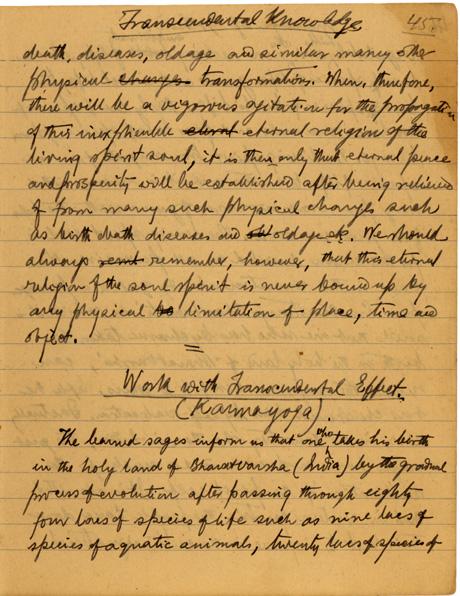 Transcendental Knowledge
45
death, diseases, oldage and similar many other
physical changes transformations. When, therefore,
there will be a vigorous agitation for the propagation
of this inexplicable eternal religion of the
living spirit soul, it is then only that eternal peace
and prosperity will be established after being relieved
of from many such physical changes such
as birth death diseases and oldage etc. We should
always remember, however, that this eternal
religion of the soul spirit is never bound up by
any physical limitation of place, time and
object.
Work with Transcendental Effect.
(Karmayoga).
The learned sages inform us that one who takes his birth
in the holy land of Bharatvarsha (India) by the gradual
process of evolution after passing through eighty
four lacs of species of life such as nine lacs of
species of aquatic animals, twenty lacs of species of